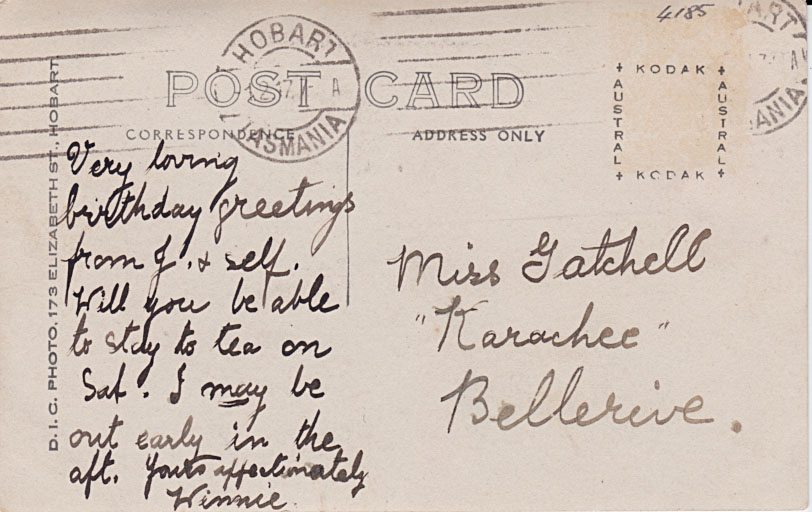 4185
HOBART
TASMANIA
A
POST CARD
CORRESPONDENCE
ADDRESS ONLY
KODAK
AUSTRAL
AUSTRAL
KODAK
D.I.C. PHOTO. 173 ELIZABETH ST., HOBART
Very loving
birthday greetings
from J. & self.
Will you be able
to stay to tea on
Sat. I may be
out early in the
aft. Yours affectionately
Winnie.
Miss Gatchell
"Karachee"
Bellerive.